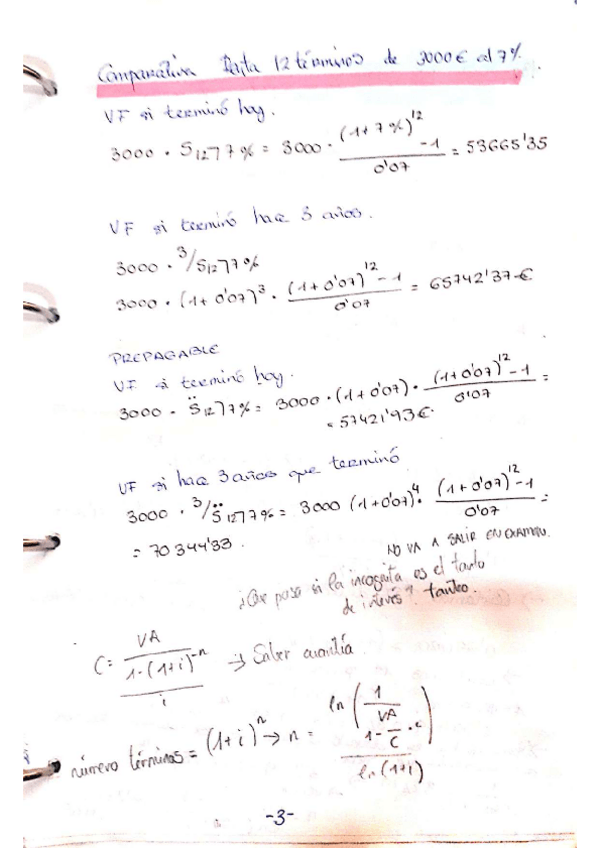 Comparativa Renta 12 términos de 3000€ al 7%.
VF si terminó hoy.
3000 · S12¬7% = 3000 · ((1+7%)^12 -1)/0'07 = 53665'35
VF si terminó hace 3 años.
3000 · 3/S12¬7%
3000 · (1+0'07)^3 · ((1+0'07)^12 -1)/0'07 = 65742'37€
PREPAGABLE
VF si terminó hoy.
3000 · S̈12¬7% = 3000 · (1+0'07) · ((1+0'07)^12 -1)/0'07 =
= 57421'93€.
VF si hace 3 años que terminó
3000 · 3/S̈12¬7% = 3000 (1+0'07)^4 · ((1+0'07)^12 -1)/0'07 =
= 70344'33.
NO VA A SALIR EN EXAMEN.
¿Que pasa si la incognita es el tanto
de interés? tanteo.
C = VA/((1-(1+i)^-n)/i) → Saber cuantía
número términos = (1+i)^n → n = ln(1/(1-VA/C·i))/ln(1+i)
-3-